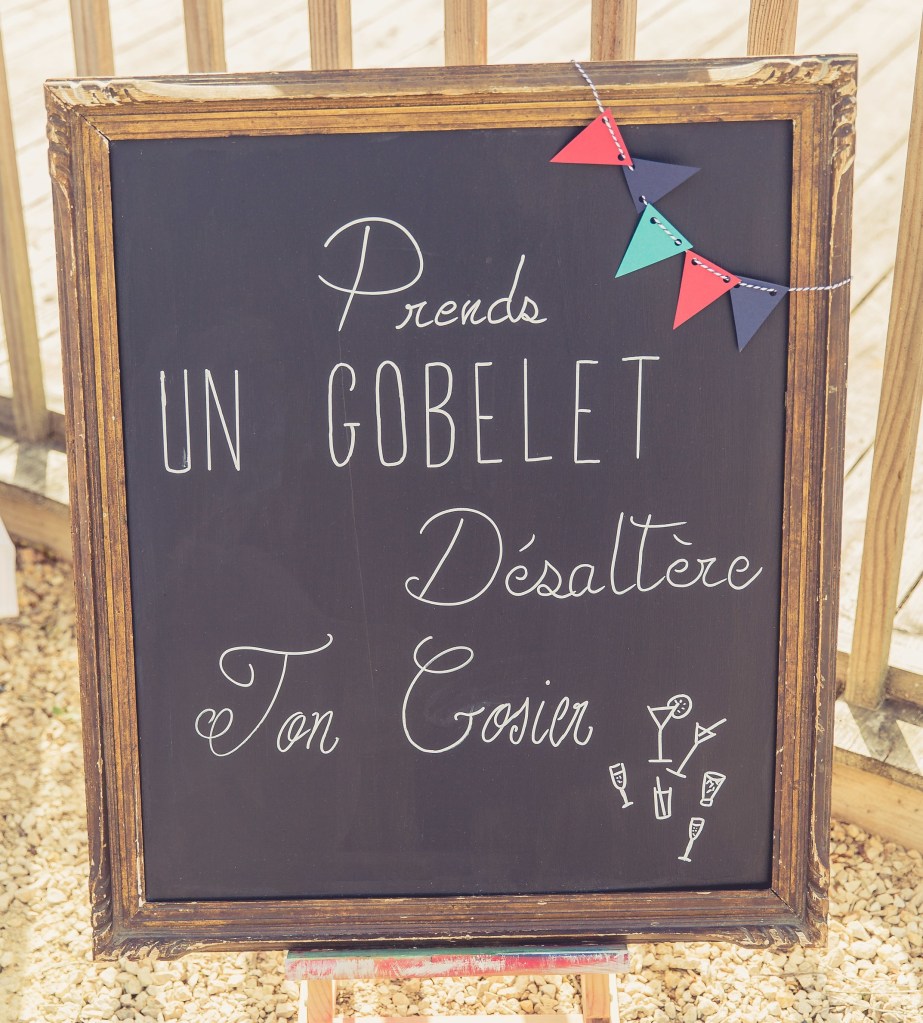 Prends
UN GOBELET
Désaltère
Ton Gosier